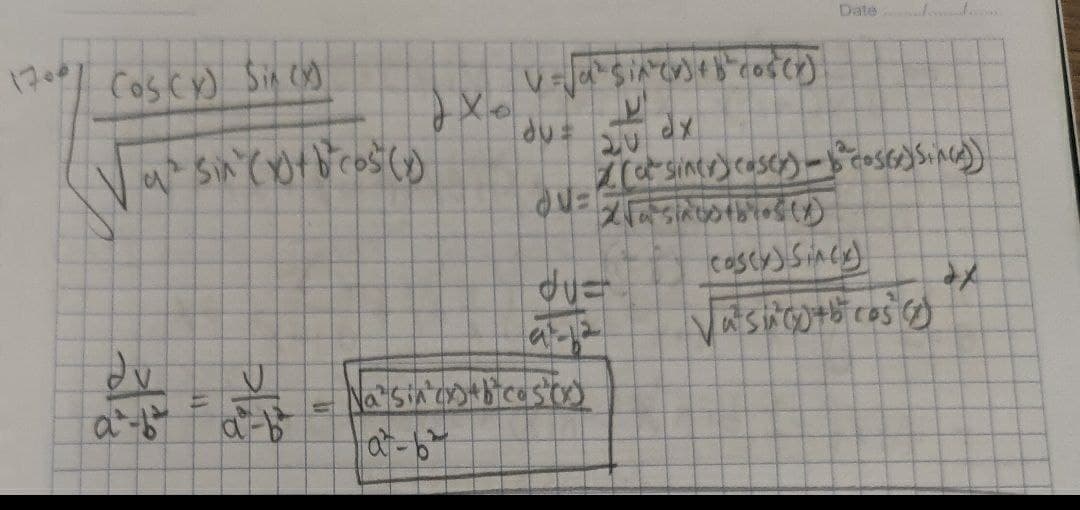 Date
1700) ∫ cos(x) sin(x) / √a² sin²(x)+b² cos²(x) dx
v=√a² sin²(x)+b² cos²(x)
dv= v' / 2v dx
dv= 2(a² sin(x) cos(x) - b² cos(x) sin(x)) / 2√a² sin²(x)+b² cos²(x)
dv / a²-b² = cos(x) sin(x) / √a² sin²(x)+b² cos²(x) dx
dv / a²-b² = v / a²-b² = √a² sin²(x)+b² cos²(x) / a²-b²